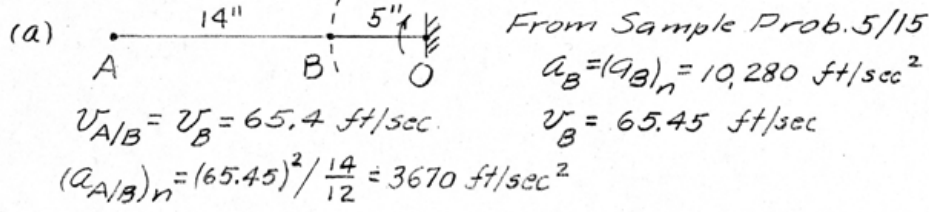 (a) 14" 5" From Sample Prob. 5/15
A B O a_B = (a_B)_n = 10,280 ft/sec²
v_{A/B} = v_B = 65.4 ft/sec. v_B = 65.45 ft/sec
(a_{A/B})_n = (65.45)² / 14/12 = 3670 ft/sec²